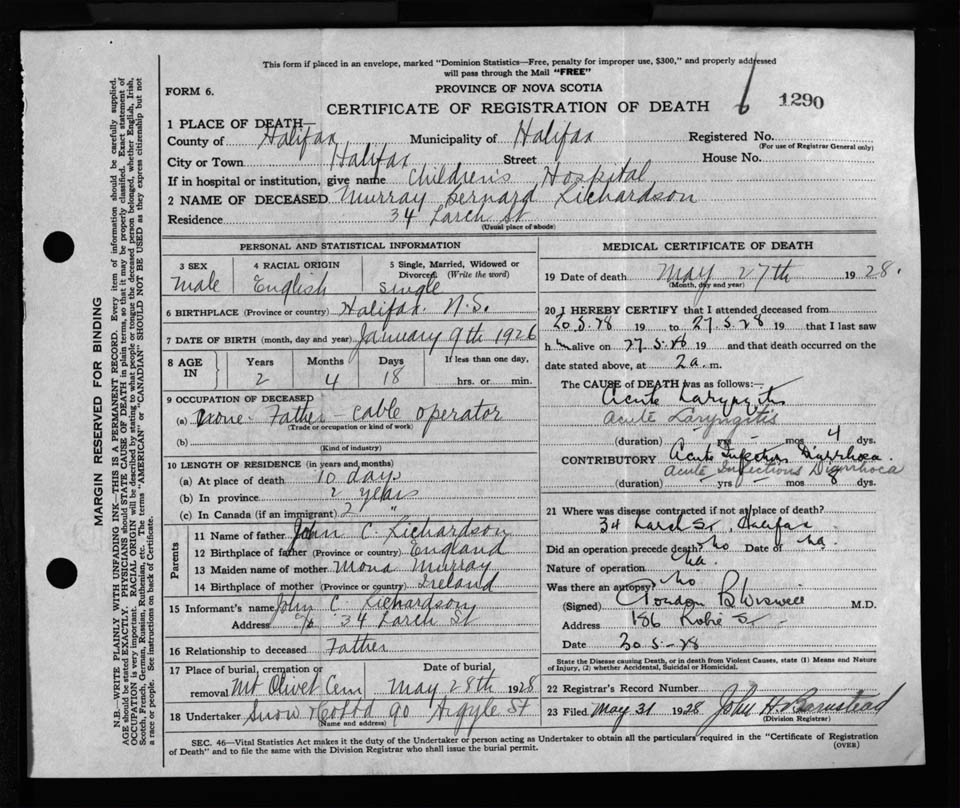 This form if placed in an envelope, marked "Dominion Statistics—Free, penalty for improper use, $300," and properly addressed
will pass through the Mail "FREE"
FORM 6.
PROVINCE OF NOVA SCOTIA
CERTIFICATE OF REGISTRATION OF DEATH
1290
1 PLACE OF DEATH—
County of Halifax Municipality of Halifax Registered No.
(For use of Registrar General only)
City or Town Halifax Street House No.
If in hospital or institution, give name Children's Hospital
2 NAME OF DECEASED Murray Bernard Richardson
Residence 34 Larch St
(Usual place of abode)
PERSONAL AND STATISTICAL INFORMATION
3 SEX 4 RACIAL ORIGIN 5 Single, Married, Widowed or
Divorced (Write the word)
Male English Single
6 BIRTHPLACE (Province or country) Halifax. N.S.
7 DATE OF BIRTH (month, day and year) January 9th 1926
8 AGE IN Years Months Days If less than one day,
2 4 18 hrs. or min.
9 OCCUPATION OF DECEASED
(a) None. Father – cable operator
(Trade or occupation or kind of work)
(b)
(Kind of industry)
10 LENGTH OF RESIDENCE (in years and months)
(a) At place of death 10 days
(b) In province 2 years
(c) In Canada (if an immigrant) 2 "
Parents
11 Name of father John C. Richardson
12 Birthplace of father (Province or country) England
13 Maiden name of mother Mona Murray
14 Birthplace of mother (Province or country) Ireland
15 Informant's name John C Richardson
Address 34 Larch St
16 Relationship to deceased Father
17 Place of burial, cremation or Date of burial
removal Mt Olivet Cem May 28th 1928
18 Undertaker Snow & Co Ltd 90 Argyle St
(Name and address)
MEDICAL CERTIFICATE OF DEATH
19 Date of death May 27th 1928.
(Month, day and year)
20 I HEREBY CERTIFY that I attended deceased from
20.5.28 19 to 27.5.28 19 that I last saw
h im alive on 27.5.28 19 and that death occurred on the
date stated above, at 2 a. m.
The CAUSE of DEATH was as follows:—
Acute Laryngitis
Acute Laryngitis
(duration) – yrs – mos 4 dys.
CONTRIBUTORY Acute Infectious Diarrhoea
Acute Infectious Diarrhoea
(duration) – yrs – mos 8 dys.
21 Where was disease contracted if not at place of death?
34 Larch St, Halifax
Did an operation precede death? No Date of na
Nature of operation na.
Was there an autopsy? No
(Signed) Gordon B Wiswell M.D.
Address 186 Robie St
Date 30.5.28
State the Disease causing Death, or in death from Violent Causes, state (1) Means and Nature
of Injury, (2) whether Accidental, Suicidal or Homicidal.
22 Registrar's Record Number
23 Filed May 31 1928 John H Barnstead
(Division Registrar)
SEC. 46—Vital Statistics Act makes it the duty of the Undertaker or person acting as Undertaker to obtain all the particulars required in the "Certificate of Registration
of Death" and to file the same with the Division Registrar who shall issue the burial permit.
(OVER)
MARGIN RESERVED FOR BINDING
N.B.—WRITE PLAINLY WITH UNFADING INK—THIS IS A PERMANENT RECORD. Every item of information should be carefully supplied.
AGE should be stated EXACTLY. PHYSICIANS should STATE CAUSE OF DEATH in plain terms, so that it may be properly classified. Exact statement of
OCCUPATION is very important. RACIAL ORIGIN will be described by stating to what people or tongue the deceased person belonged, whether English, Irish,
Scotch, French, German, Russian, Ruthenian, etc. The terms "AMERICAN" or "CANADIAN" SHOULD NOT BE USED as they express citizenship but not
a race or people. See instructions on back of Certificate.